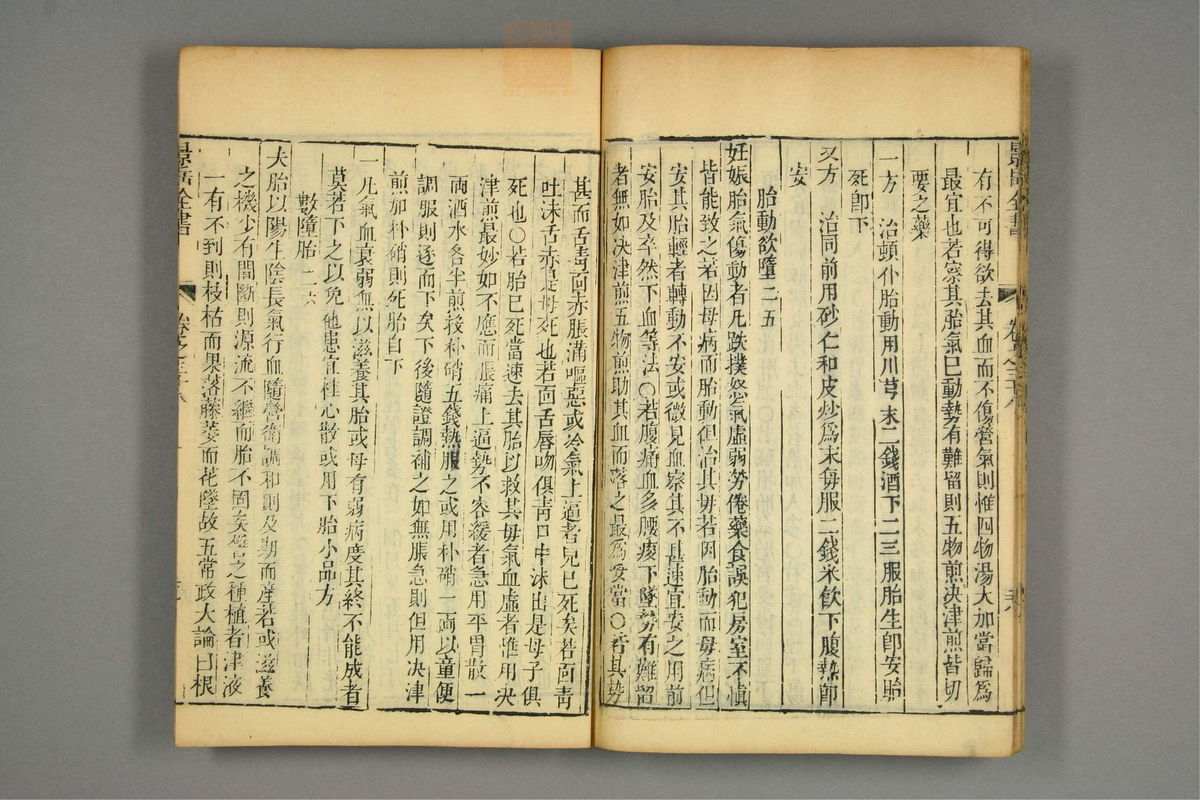 有不可得欲去其血而不傷營氣則惟四物湯大加當歸爲
最宜也若察其胎氣已動勢有難留則五物煎決津煎皆切
要之藥
一方 治頓仆胎動用川芎末二錢酒下二三服胎生卽安胎
死卽下
又方 治同前用砂仁和皮炒爲末每服二錢米飮下腹熱卽
安
胎動欲墮二五
妊娠胎氣傷動者凡跌撲怒氣虛弱勞倦藥食誤犯房室不愼
皆能致之若因母病而胎動但治其母若因胎動而母病但
安其胎輕者轉動不安或微見血察其不甚速宜安之用前
安胎及卒然下血等法○若腹痛血多腰痠下墜勢有難留
者無如决津煎五物煎助其血而落之最爲妥當○若其勢
甚而舌靑面赤脹滿嘔惡或冷氣上逼者兒已死矣若面靑
吐沫舌赤是母死也若面舌唇吻俱靑口中沫出是母子俱
死也○若胎已死當速去其胎以救其母氣血虛者惟用决
津煎最妙如不應而脹痛上逼勢不容緩者急用平胃散一
兩酒水各半煎投朴硝五錢熱服之或用朴硝一兩以童便
調服則逐而下矣下後隨證調補之如無脹急則但用决津
煎加朴硝則死胎自下
一凡氣血衰弱無以滋養其胎或母有弱病度其終不能成者
莫若下之以免他患宜桂心散或用下胎小品方
數墮胎 二六
夫胎以陽生陰長氣行血隨營衞調和則及期而產若或滋養
之機少有間斷則源流不繼而胎不固矣譬之種植者津液
一有不到則枝枯而果落藤萎而花墜故五常政大論曰根
景岳全書